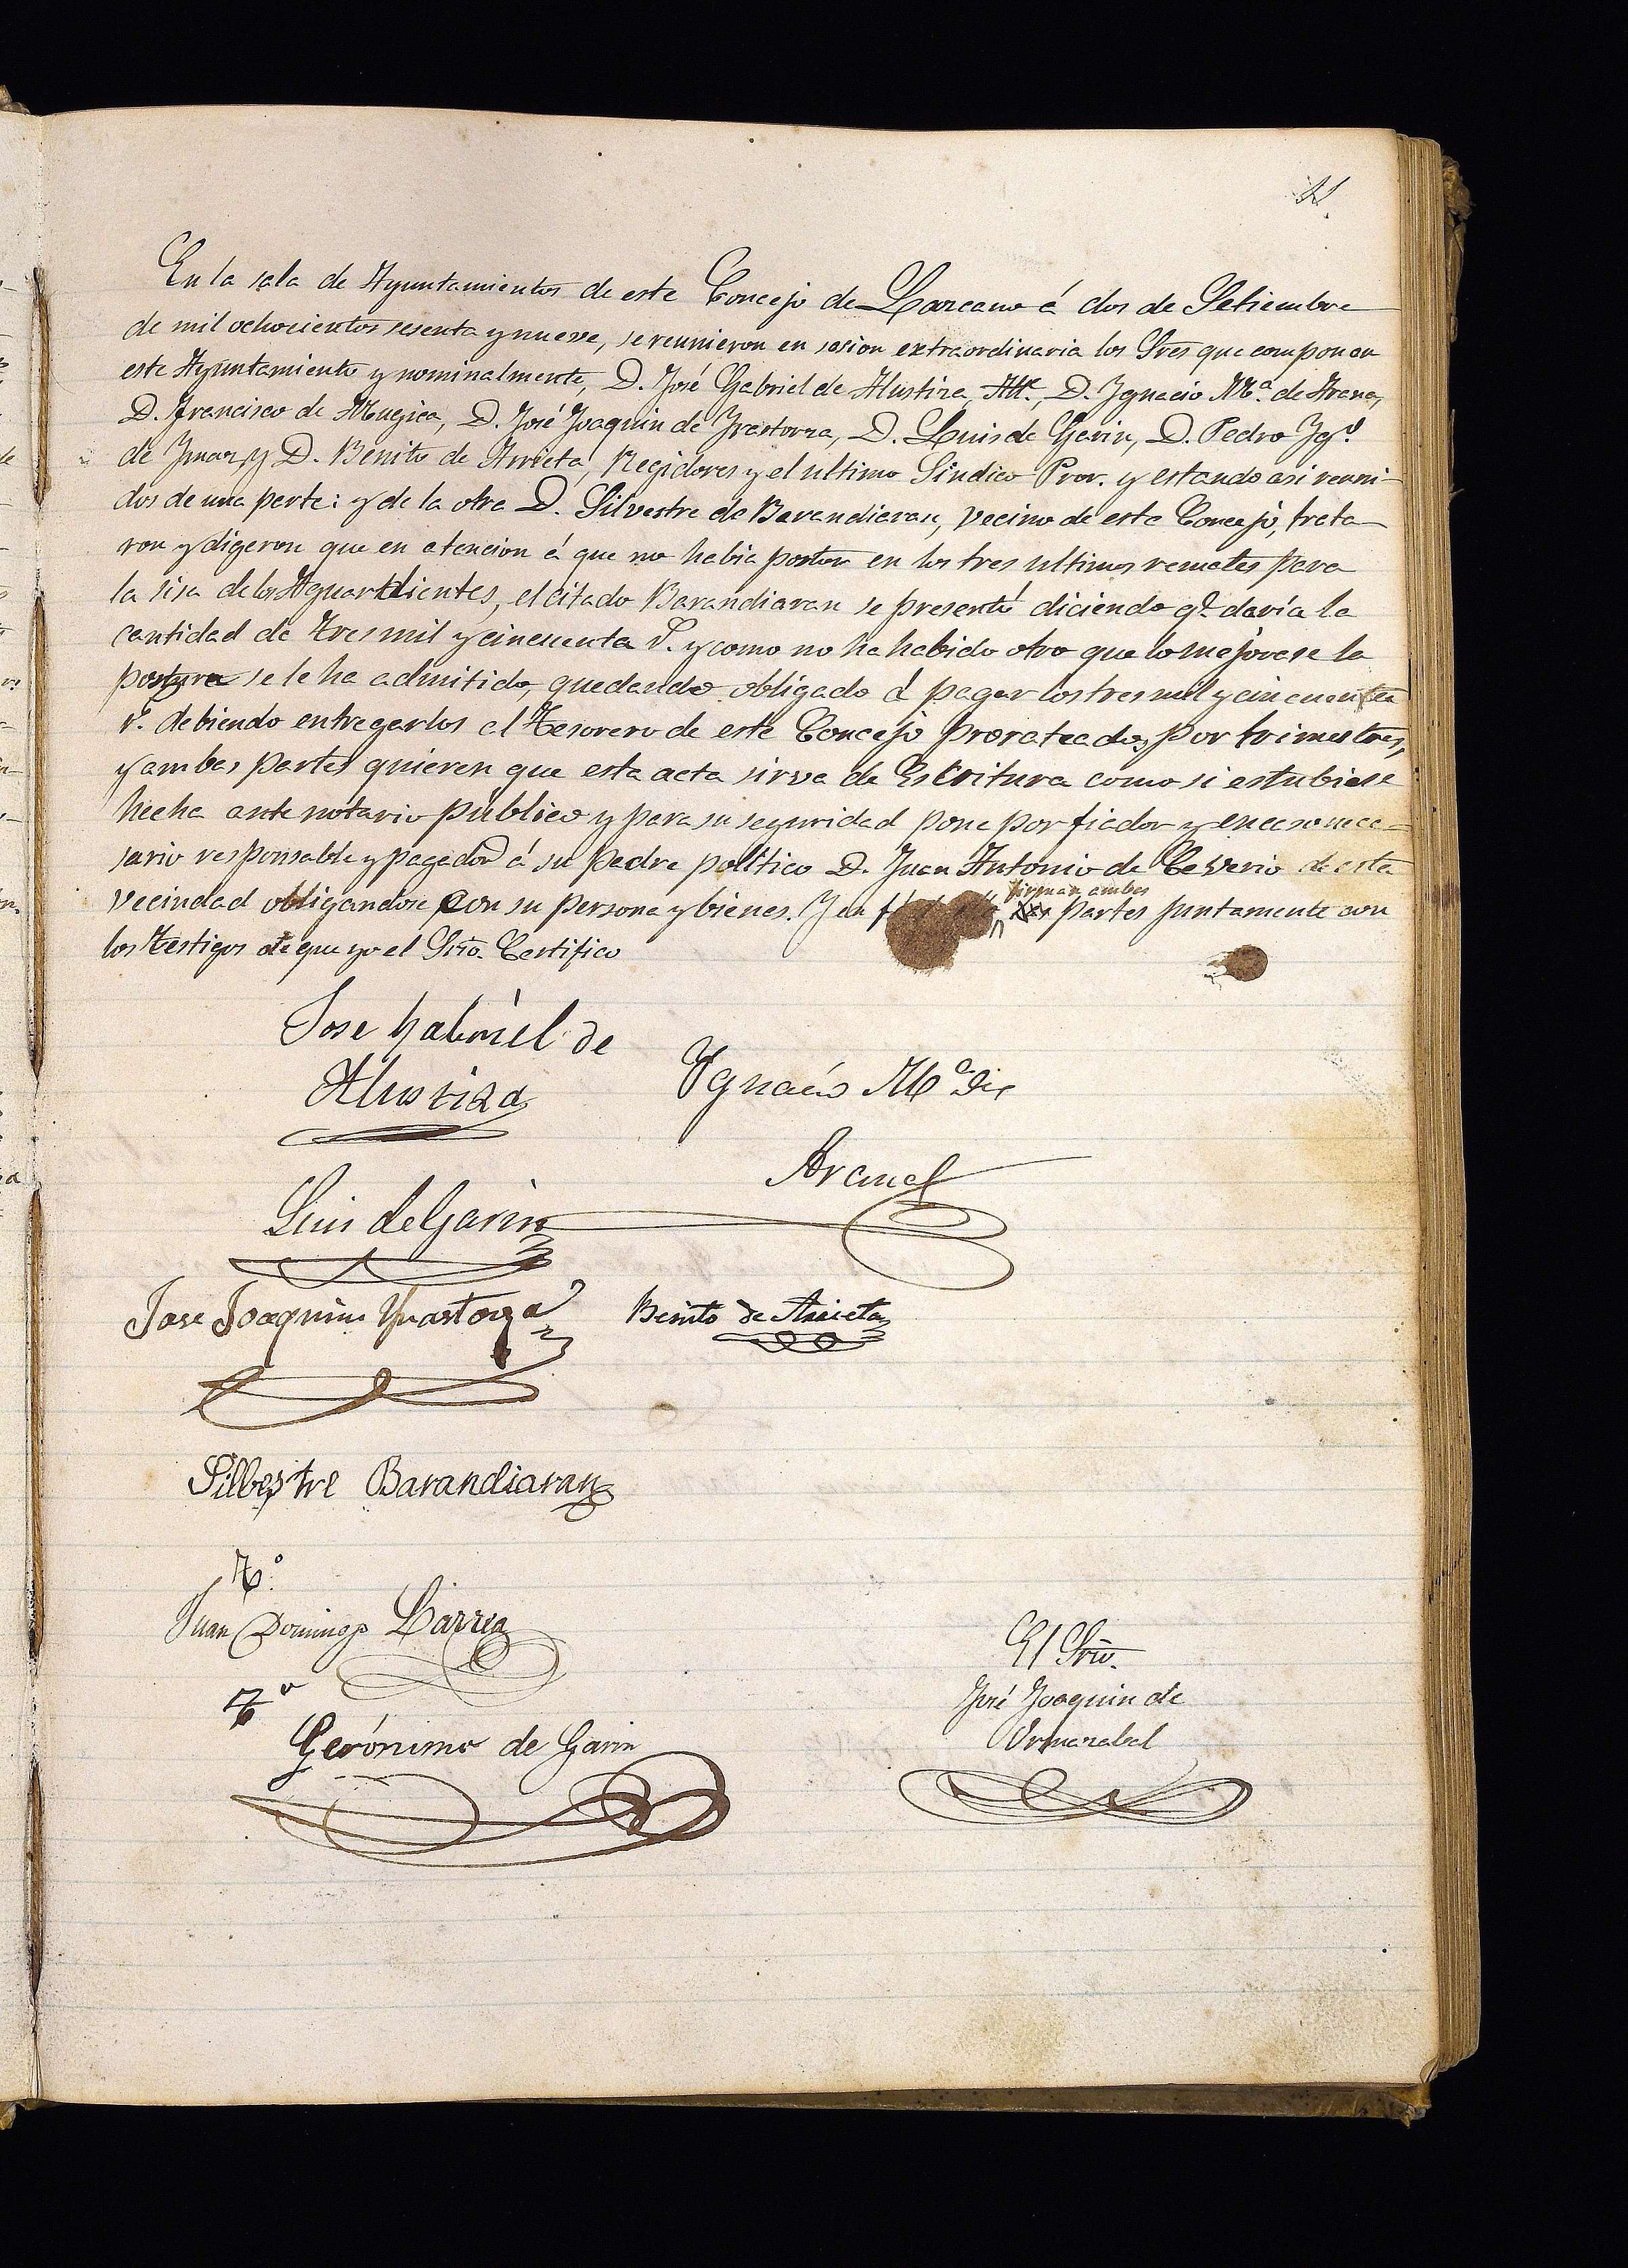 En la sala de Ayuntamientos de este Concejo de Lazcano á dos de Setiembre
de mil ochocientos sesenta y nueve, se reunieron en sesion extraordinaria los Sres que componen
este Ayuntamiento y nominalmente, D. José Gabriel de Alustiza, Alc., D. Ygnacio Mª. de Arana,
D. Francisco de Mugica, D. José Joaquin de Yrastorza, D. Luis de Garin, D. Pedro Ygº.
de y D. Benito de Arrieta, Regidores y el ultimo Sindico Pror. y estando asi reuni-
dos de una parte: y de la otra D. Silvestre de Barandiaran, vecino de este Concejo, trata
ron y digeron que en atencion á que no habia postor en los tres ultimos remates para
la sisa de los Aguardientes, el citado Barandiaran se presentó diciendo qe. daría la
cantidad de tres mil y cincuenta rs. y como no ha habido otro que lo mejorase la
postura se le ha admitido, quedando obligado á pagar los tres mil y cincuenta
rs. debiendo entregarlos al Tesorero de este Concejo prorateados, por trimestres,
y ambas partes quieren que esta acta sirva de Escritura como si estubiese
hecha ante notario público y para su seguridad pone por fiador y en caso nece-
sario responsable y pagador á su padre político D. Juan Antonio de Ceverio de esta
vecindad obligandose con su persona y bienes. Y en firman ambas partes juntamente con
los testigos de que yo el Srio. Certifico
Jose Gabriel de
Alustiza
Ygnacio Mª de
Arana
Luis de Garin
Jose Joaquin Yrastorza
Benito de Arrieta
Silbestre Barandiaran
Tº.
Juan Domingo Larrea
Tº
Gerónimo de Garin
El Srio.
José Joaquin de
Ormazabal